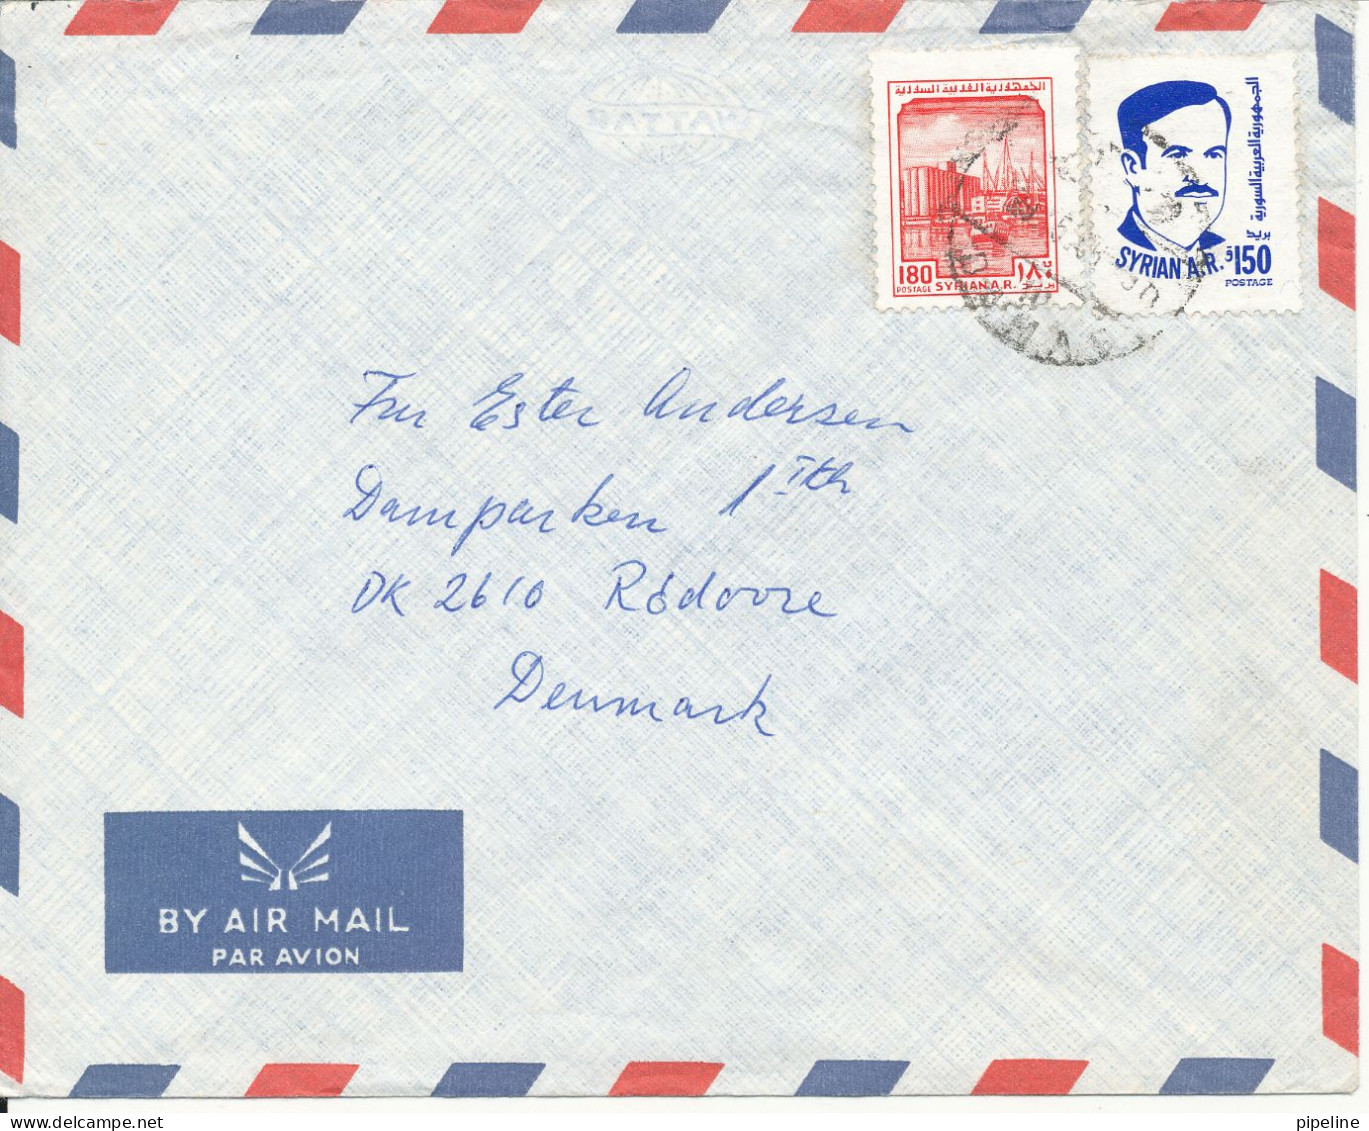 الجمهورية العربية السورية
180
١٨٠
POSTAGE SYRIAN A.R. بريد
الجمهورية العربية السورية
بريد
SYRIAN A.R.
ق150
POSTAGE
Fru Ester Andersen
Damparken 1 Ith
DK 2610 Rødovre
Denmark
BY AIR MAIL
PAR AVION
pipeline